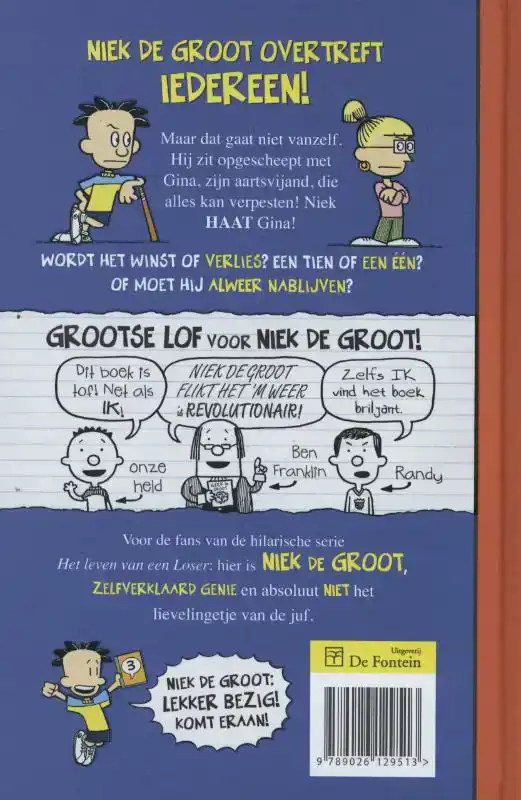 NIEK DE GROOT OVERTREFT
IEDEREEN!
Maar dat gaat niet vanzelf.
Hij zit opgescheept met
Gina, zijn aartsvijand, die
alles kan verpesten! Niek
HAAT Gina!
WORDT HET WINST OF VERLIES? EEN TIEN OF EEN ÉÉN?
OF MOET HIJ ALWEER NABLIJVEN?
GROOTSE LOF VOOR NIEK DE GROOT!
Dit boek is
tof! Net als
IK!
NIEK DE GROOT
FLIKT HET 'M WEER
is REVOLUTIONAIR!
Zelfs IK
vind het boek
briljant.
onze
held
Ben
Franklin
Randy
Voor de fans van de hilarische serie
Het leven van een Loser: hier is NIEK DE GROOT,
ZELFVERKLAARD GENIE en absoluut NIET het
lievelingetje van de juf.
3
NIEK DE GROOT:
LEKKER BEZIG!
KOMT ERAAN!
Uitgeverij
De Fontein
9 789026 129513 >